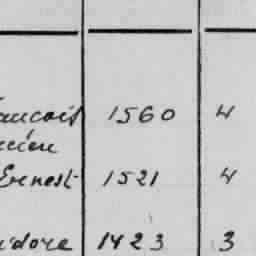 ancois 1560 4
cien
Ernest 1521 4
idore 1423 3